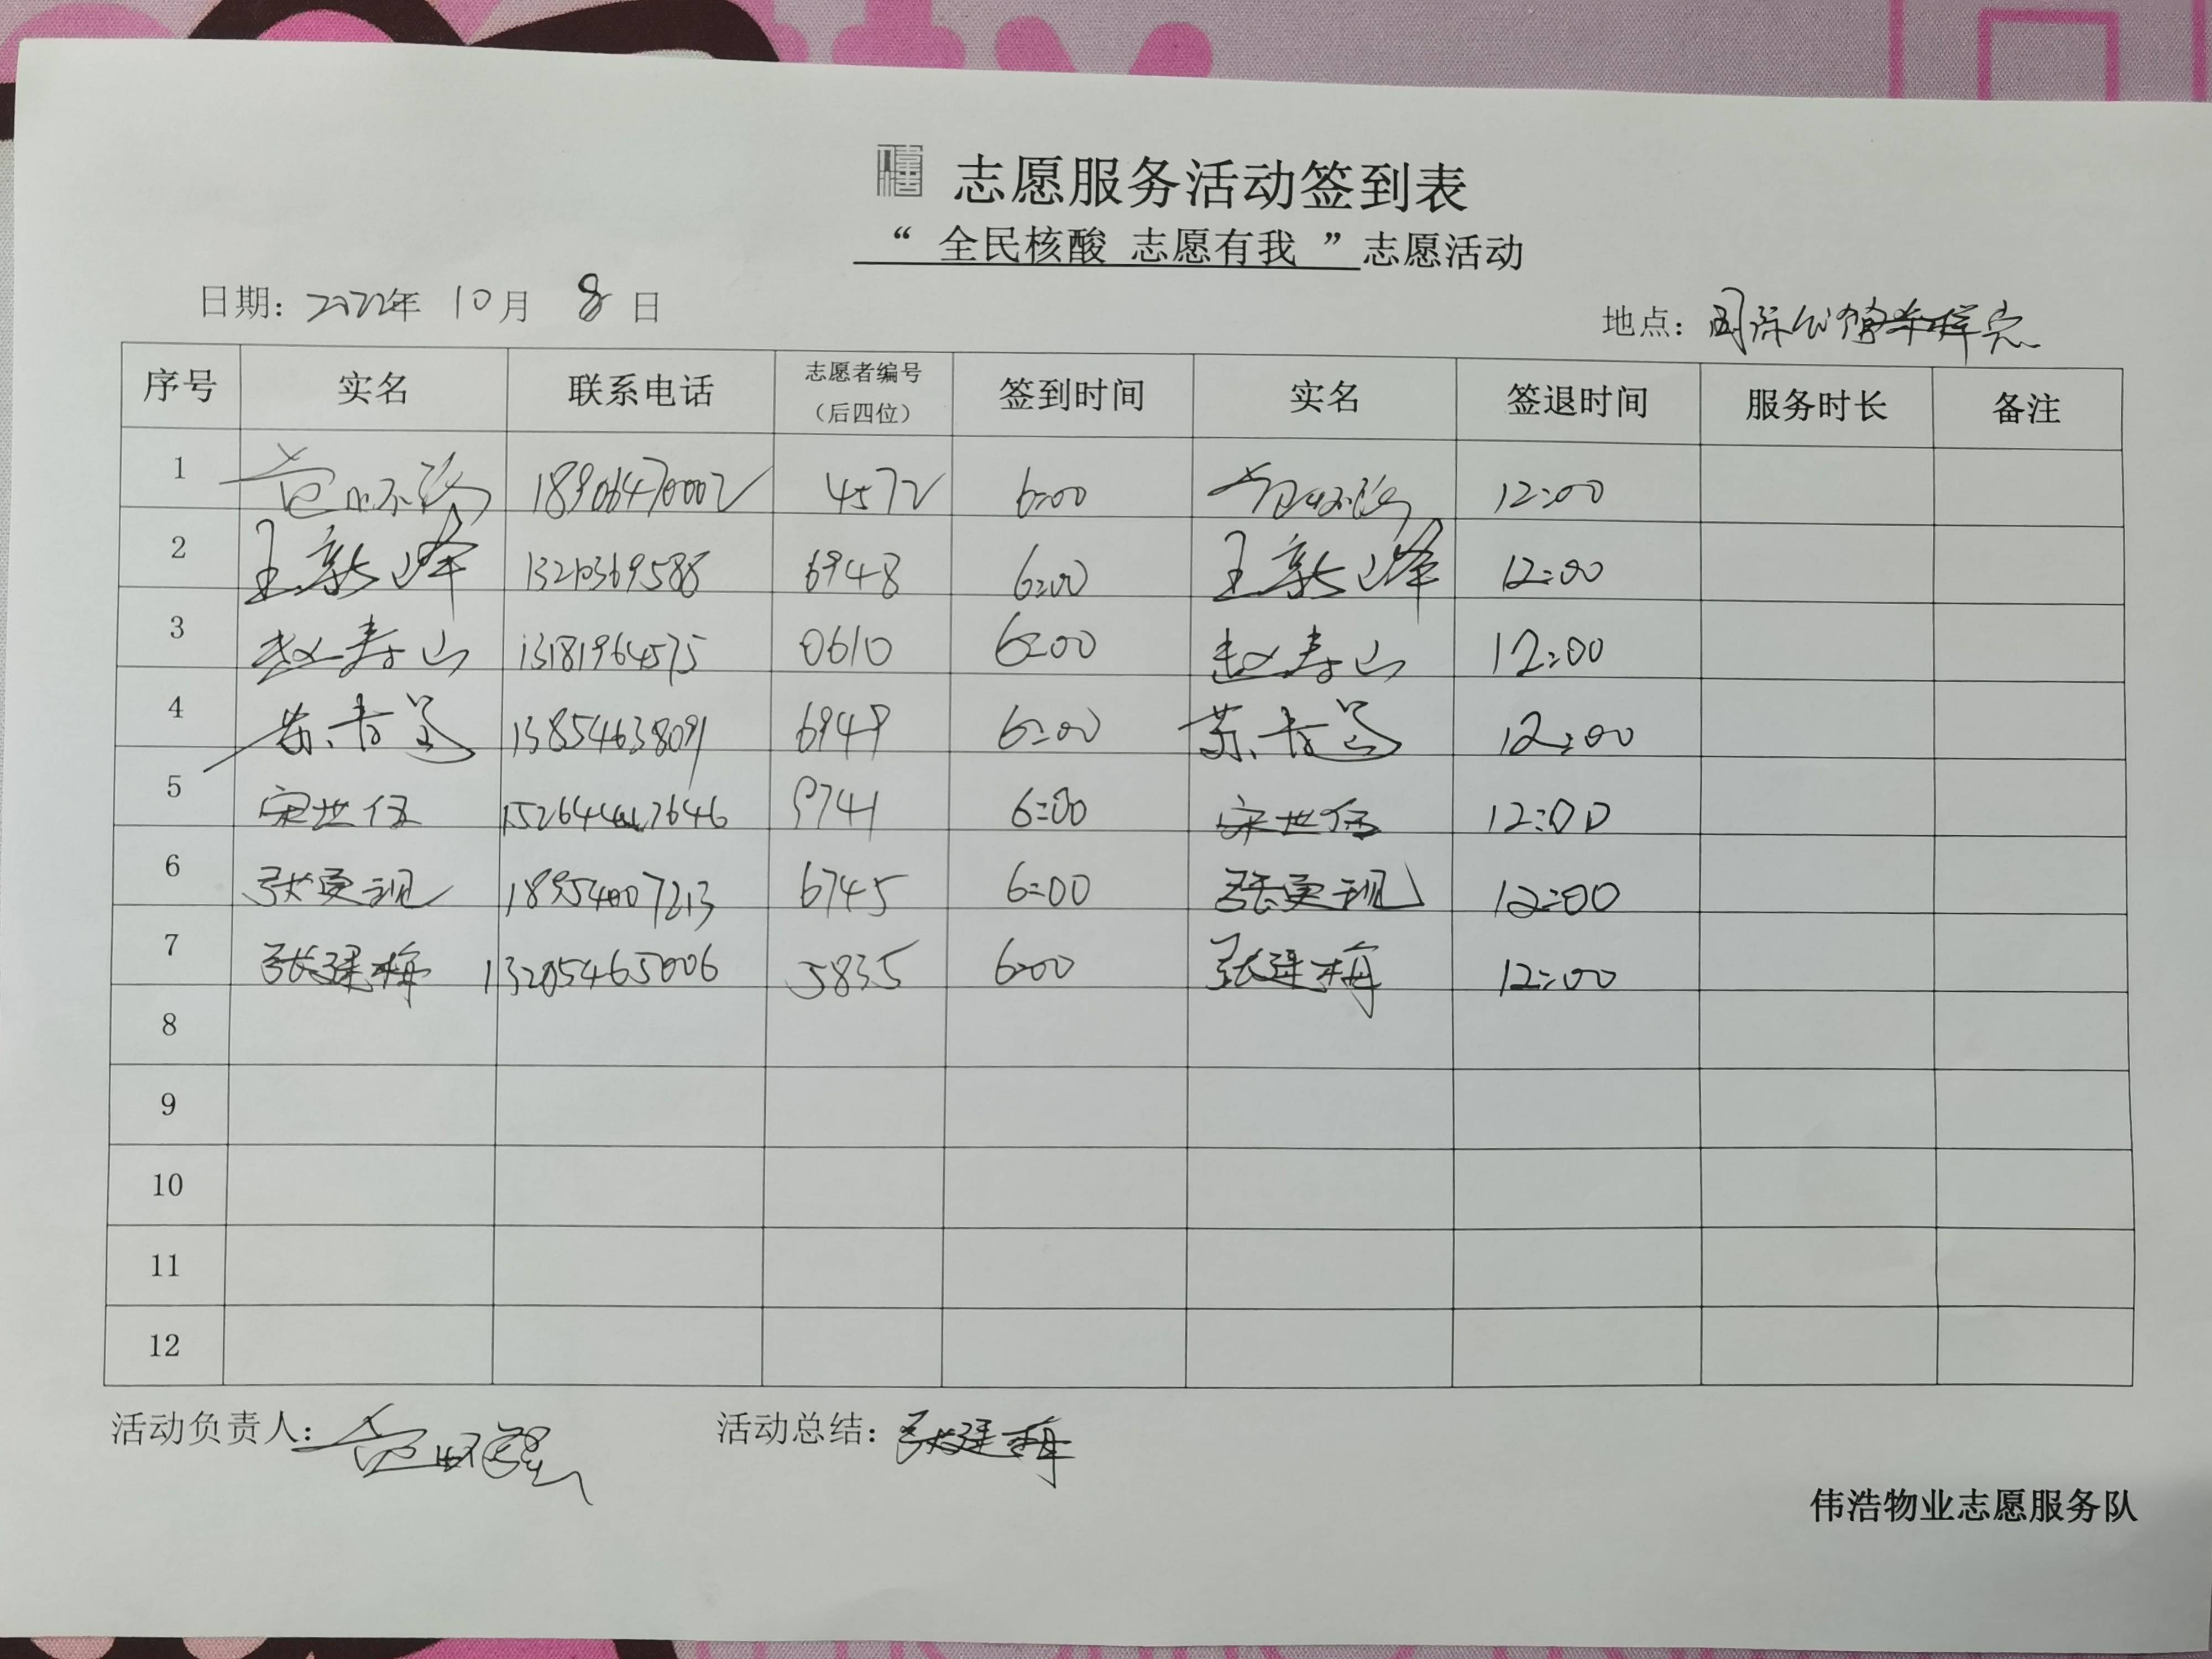 志愿服务活动签到表
“ 全民核酸 志愿有我 ”志愿活动
日期：2022年 10月 8日 地点：国际公馆采样点
序号 实名 联系电话 志愿者编号（后四位） 签到时间 实名 签退时间 服务时长 备注
1 18906470002 4572 6:00 12:00
2 王新峰 13210369588 6948 6:00 王新峰 12:00
3 赵寿山 13181964575 0610 6:00 赵寿山 12:00
4 13854638091 6949 6:00 12:00
5 宋世伍 9741 6:00 宋世伍 12:00
6 张更现 18954007213 6745 6:00 张更现 12:00
7 张建梅 13205465006 5835 6:00 张建梅 12:00
8
9
10
11
12
活动负责人： 活动总结：张建梅
伟浩物业志愿服务队